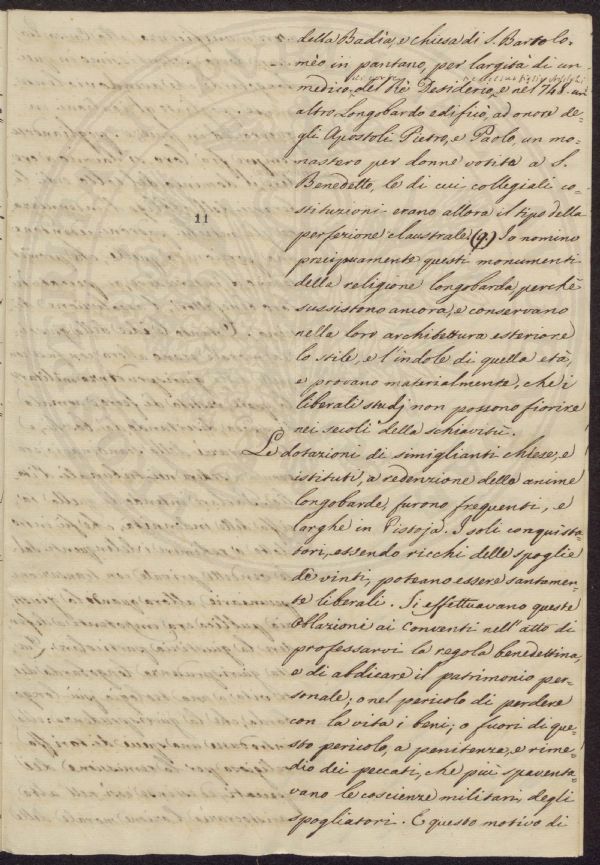 della Badìa, e chiesa di S. Bartolo=
meo in pantano, per largità di un
medico del Rè Desiderio, e nel 748. un
altro Longobardo edifiziò, ad onore de=
gli Apostoli Pietro, e Paolo, un mo=
nastero per donne votite a S.
Benedetto, le di cui collegiali co=
stituzioni erano allora il tipo della
perfezione claustrale (9.) Io nomino
precipuamente questi monumenti
della religione longobarda, perchè
sussistono ancora, e conservano
nella loro architettura esteriore
lo stile, e l'indole di quella età,
e provano materialmente, che i
liberali studj non possono fiorire
nei secoli della schiavitù.
Le dotazioni di simiglianti chiese, e
istituti, a redenzione delle anime
longobarde, furono frequenti, e
larghe in Pistoja. I soli conquista=
tori, essendo ricchi delle spoglie
de vinti, poteano essere santamen=
te liberali. Si effettuavano queste
oblazioni ai conventi nell'atto di
professarvi la regola benedettina,
e di abdicare il patrimonio per=
sonale; o nel pericolo di perdere
con la vita i beni; o fuori di que=
sto pericolo, a penitenza, e rime=
dio dei peccati, che più spaventa=
vano le coscienze militari degli
spogliatori. E questo motivo di
11